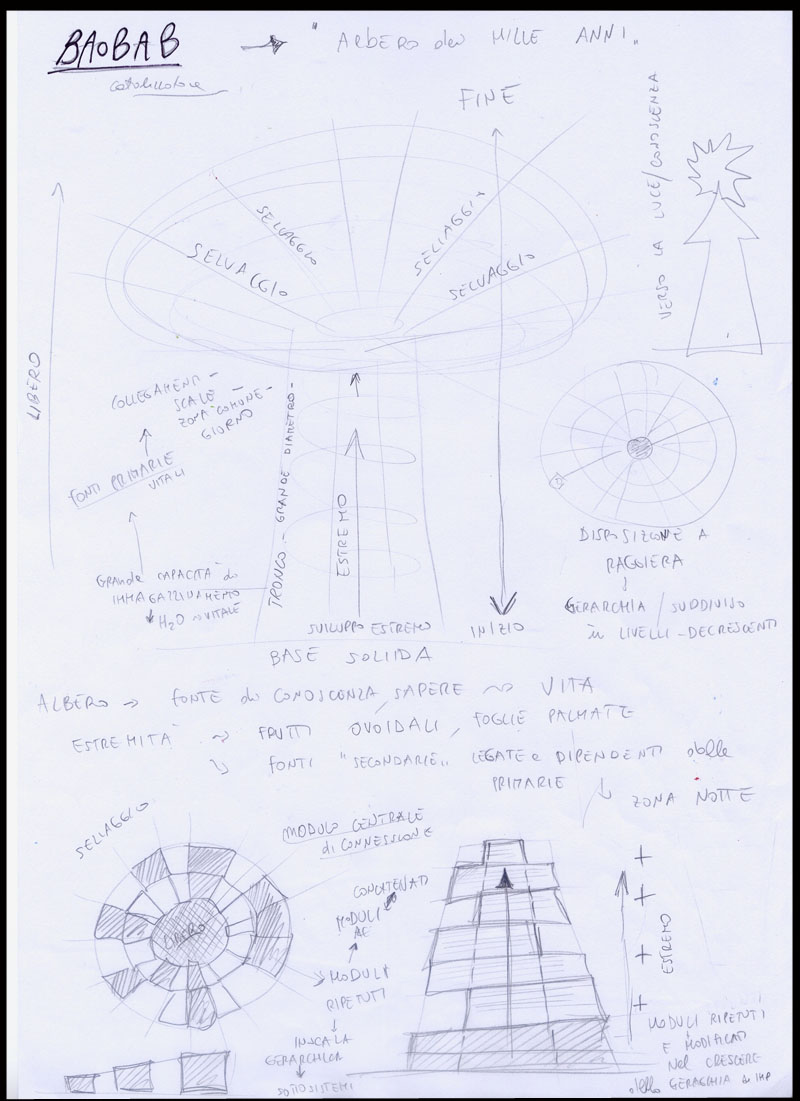 BAOBAB → "ALBERO dei MILLE ANNI"
FINE
VERSO LA LUCE/CONOSCENZA
SELVAGGIO
SELVAGGIO
SELVAGGIO
SELVAGGIO
LIBERO
COLLEGAMENTI -
SCALE -
ZONA "COMUNE -
GIORNO
FONTI PRIMARIE
VITALI
GRANDE CAPACITÀ di
IMMAGAZZINAMENTO
H2O → VITALE
TRONCO - GRANDE DIAMETRO -
ESTREMO
SVILUPPO ESTREMO
INIZIO
BASE SOLIDA
DISPOSIZIONE A
RAGGIERA
GERARCHIA / SUDDIVISO
in LIVELLI - DECRESCENTI
ALBERO → FONTE di CONOSCENZA, SAPERE ~> VITA
ESTREMITÀ ~> FRUTTI OVOIDALI, FOGLIE PALMATE
FONTI "SECONDARIE" LEGATE e DIPENDENTI dalle
PRIMARIE
ZONA NOTTE
SELVAGGIO
MODULO CENTRALE
di CONNESSIONE
LIBERO
CONCATENATI
MODULI
MODULI
RIPETUTI
GERARCHICA
SOTTOSISTEMI
+
+
+
+
ESTREMO
MODULI RIPETUTI
E MODIFICATI
NEL CRESCERE
della GERARCHIA di IMP